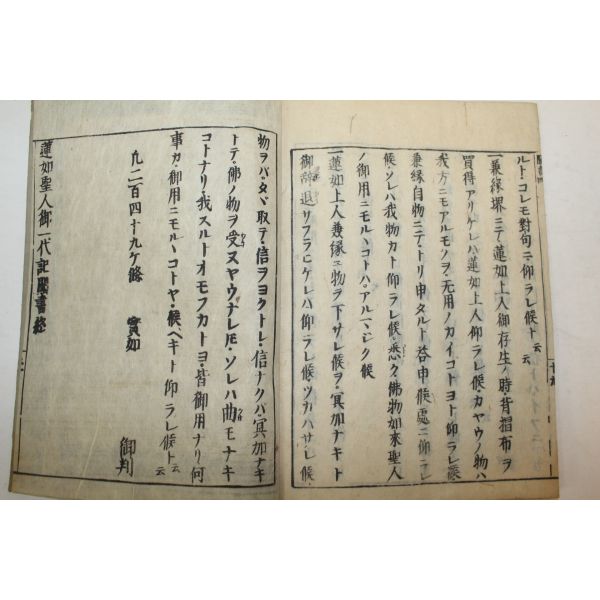 ルト・コレモ對句ニ仰ラレ候ト云云
一兼緣堺ニテ蓮如上人御存生ノ時背摺布ヲ
買得アリケレハ蓮如上人仰ラレ候・カヤウノ物ハ
我方ニモアルモノヲ・无用ノカイコトヨト仰ラレ候
兼緣自物ニテ・トリ申タルト荅申候處ニ仰ラレ
候・ソレハ我物カト仰ラレ候・悉ク佛物如來聖人
ノ御用ニモル丶コトハ・アルマシク候
一蓮如上人兼緣ニ物ヲ下サレ候ヲ・冥加ナキト
御辞退サフラヒケレハ仰ラレ候・ツカハサレ候
物ヲバ・タヾ取テ・信ヲヨクトレ・信ナクバ・冥加ナキ
トテ・佛ノ物ヲ受ヌヤウナレ𪜈・ソレハ曲モナキ
コトナリ・我スルトオモフカトヨ・皆御用ナリ・何
事カ・御用ニモル丶コトヤ・候ヘキト仰ラレ候ト云云
九二百四十九ケ條　實如
御判
蓮如聖人御一代記聞書終